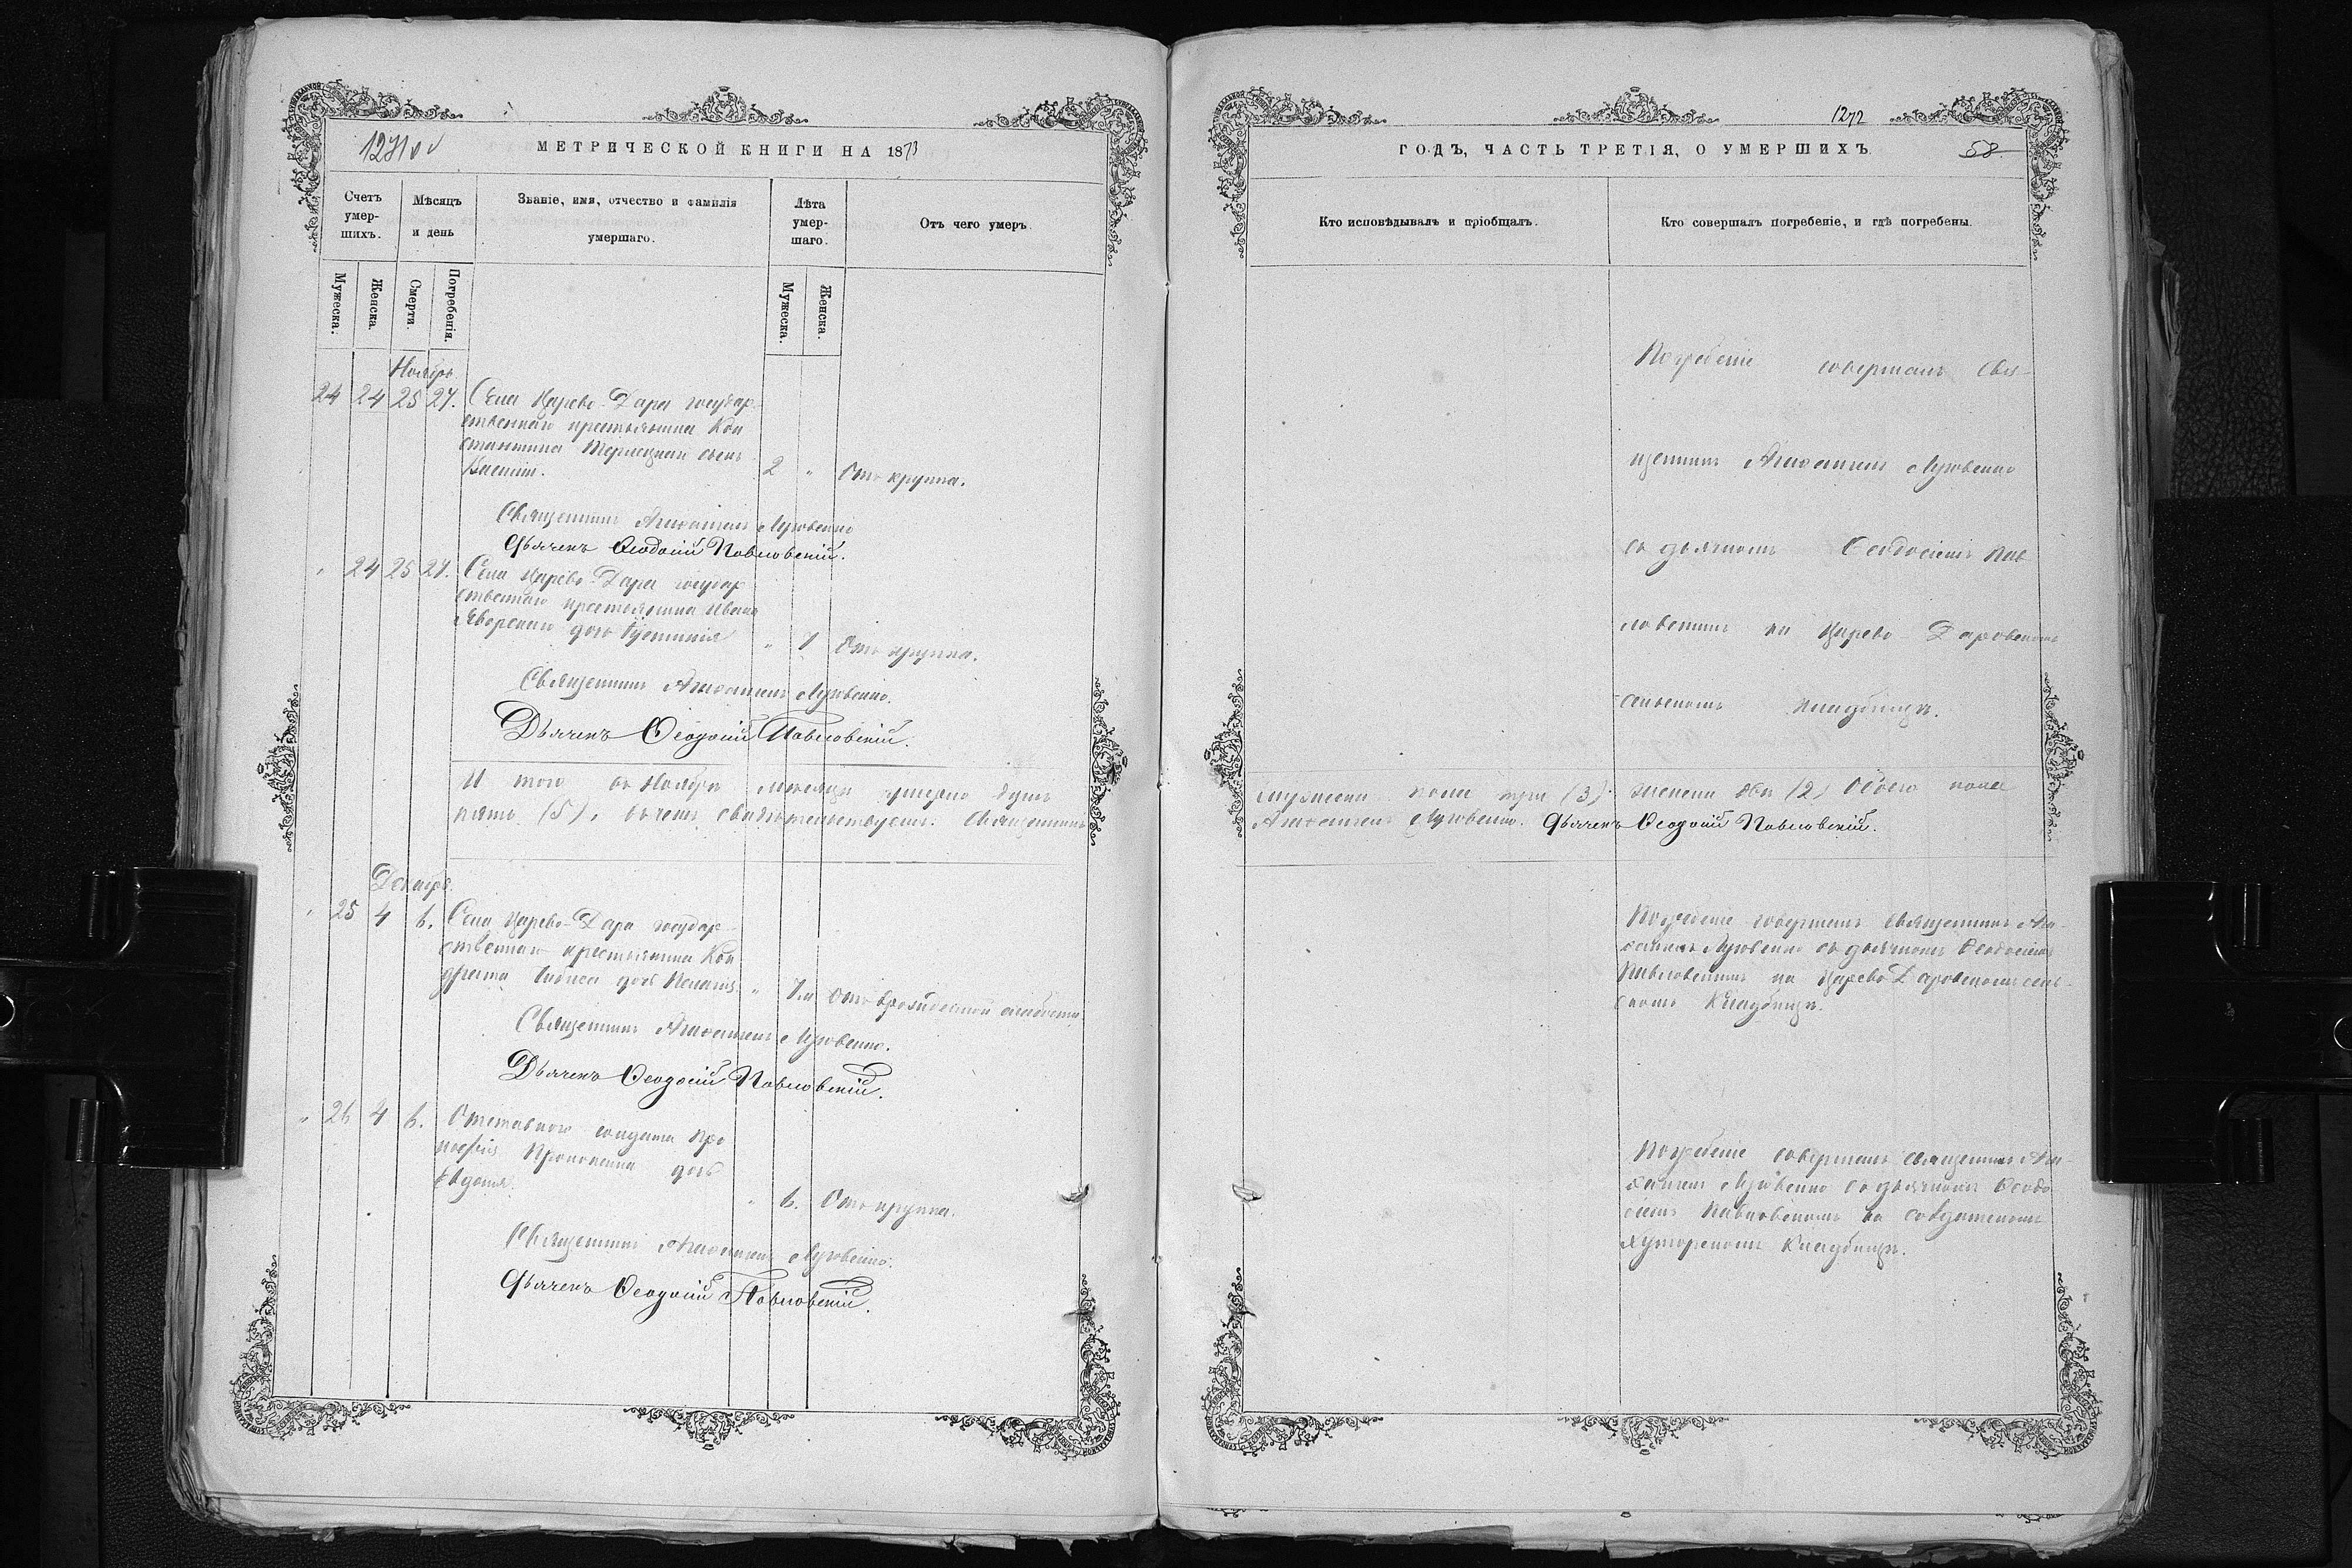 1271 об
МЕТРИЧЕСКОЙ КНИГИ НА 1873
Счетъ умер- шихъ.
Мѣсяцъ и день
Званіе, имя, отчество и фамилія умершаго.
Лѣта умер- шаго.
Отъ чего умеръ.
Мужеска.
Женска.
Смерти.
Погребенія.
Мужеска.
Женска.
Ноябрь
24 24 25 27. Села Царево-Дара государ
ственнаго крестьянина Кон
стантина сынъ
2 " Отъ крупа.
Священникъ Луговенко
Дьячекъ Ѳеодосій Павловскій.
" 24 25 27. Села Царево-Дара государ
ственнаго крестьянина Ивана
Яворскаго дочь Іустинія
" 1 Отъ крупа.
Священникъ Луговенко.
Дьячекъ Ѳеодосій Павловскій.
И того въ Ноябрѣ мѣсяцѣ умерло душъ
пять (5), въ чемъ свидѣтельствуемъ: Священникъ
Декабрь.
" 25 4 6. Села Царево-Дара государ
ственнаго крестьянина Кон
драта дочь Пелагія
" 7м Отъ слабости
Священникъ Луговенко.
Дьячекъ Ѳеодосій Павловскій.
" 26 4 6. Отставнаго солдата Про
дочь
Евдокія.
" 6. Отъ крупа.
Священникъ Луговенко.
Дьячекъ Ѳеодосій Павловскій.
1272
ГОДЪ, ЧАСТЬ ТРЕТІЯ, О УМЕРШИХЪ.
58
Кто исповѣдывалъ и пріобщалъ.
Кто совершалъ погребеніе, и гдѣ погребены.
Погребеніе совершалъ свя-
щенникъ Луговенко
съ дьячкомъ Ѳеодосіемъ Пав
ловскимъ на Царево-Даровскомъ
сельскомъ кладбищѣ.
мужеска пола три (3) женска два (2) обоего пола
Луговенко. Дьячекъ Ѳеодосій Павловскій.
Погребеніе совершалъ священникъ
Луговенко съ дьячкомъ Ѳеодосіемъ
Павловскимъ на Царево-Даровскомъ сель-
скомъ кладбищѣ.
Погребеніе совершалъ священникъ
Луговенко съ дьячкомъ Ѳеодо
сіемъ Павловскимъ на солдатскомъ
хуторскомъ кладбищѣ.